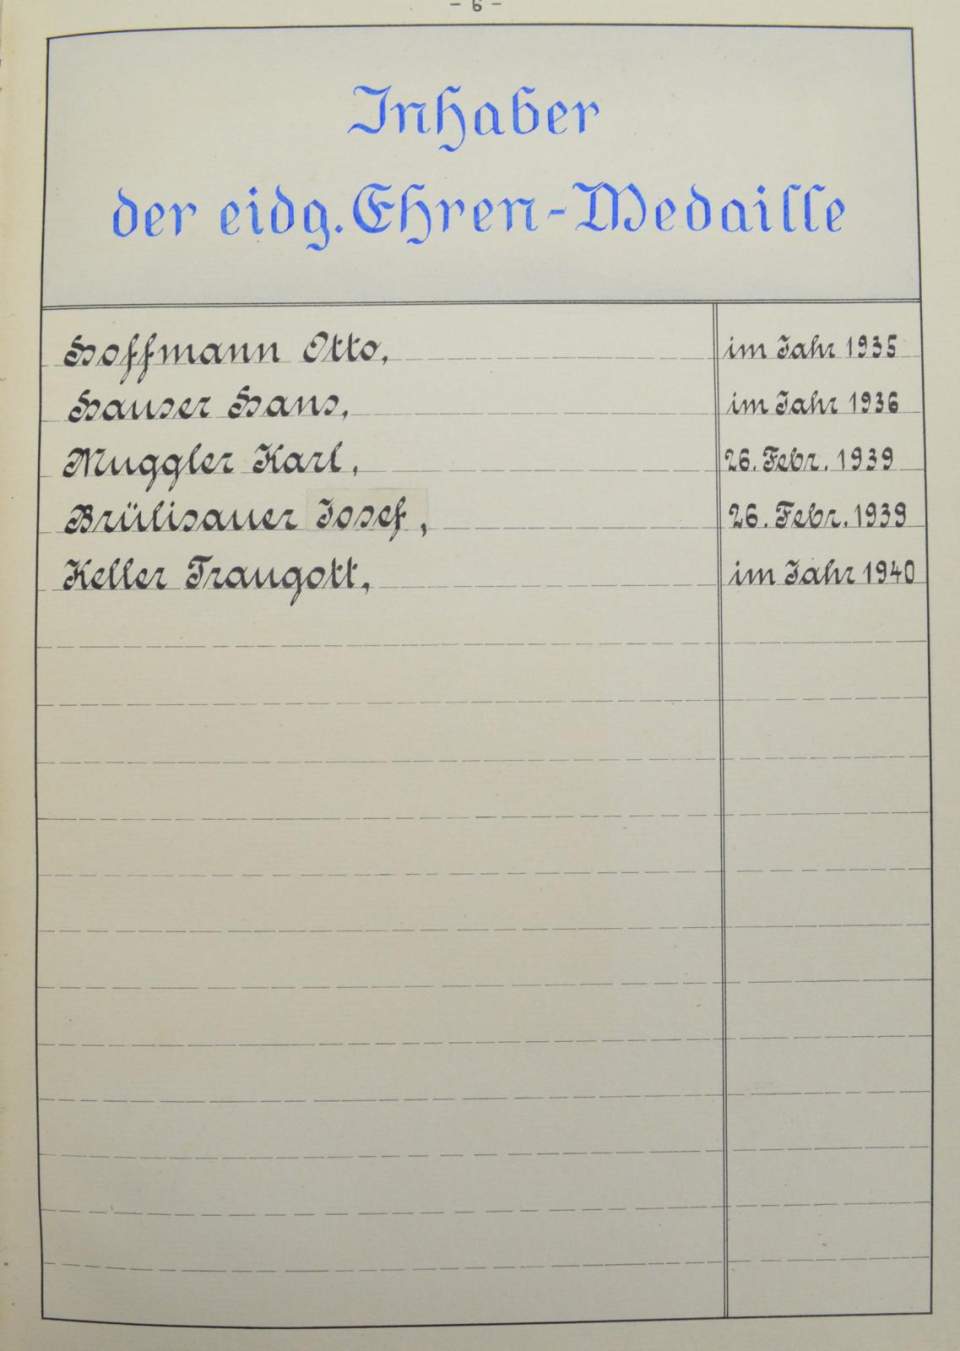 - 6 -
Inhaber
der eidg. Ehren-Medaille
Hoffmann Otto, im Jahr 1935
Hauser Hans, im Jahr 1936
Muggler Karl, 26. Febr. 1939
Brülisauer Josef, 26. Febr. 1939
Keller Traugott, im Jahr 1940